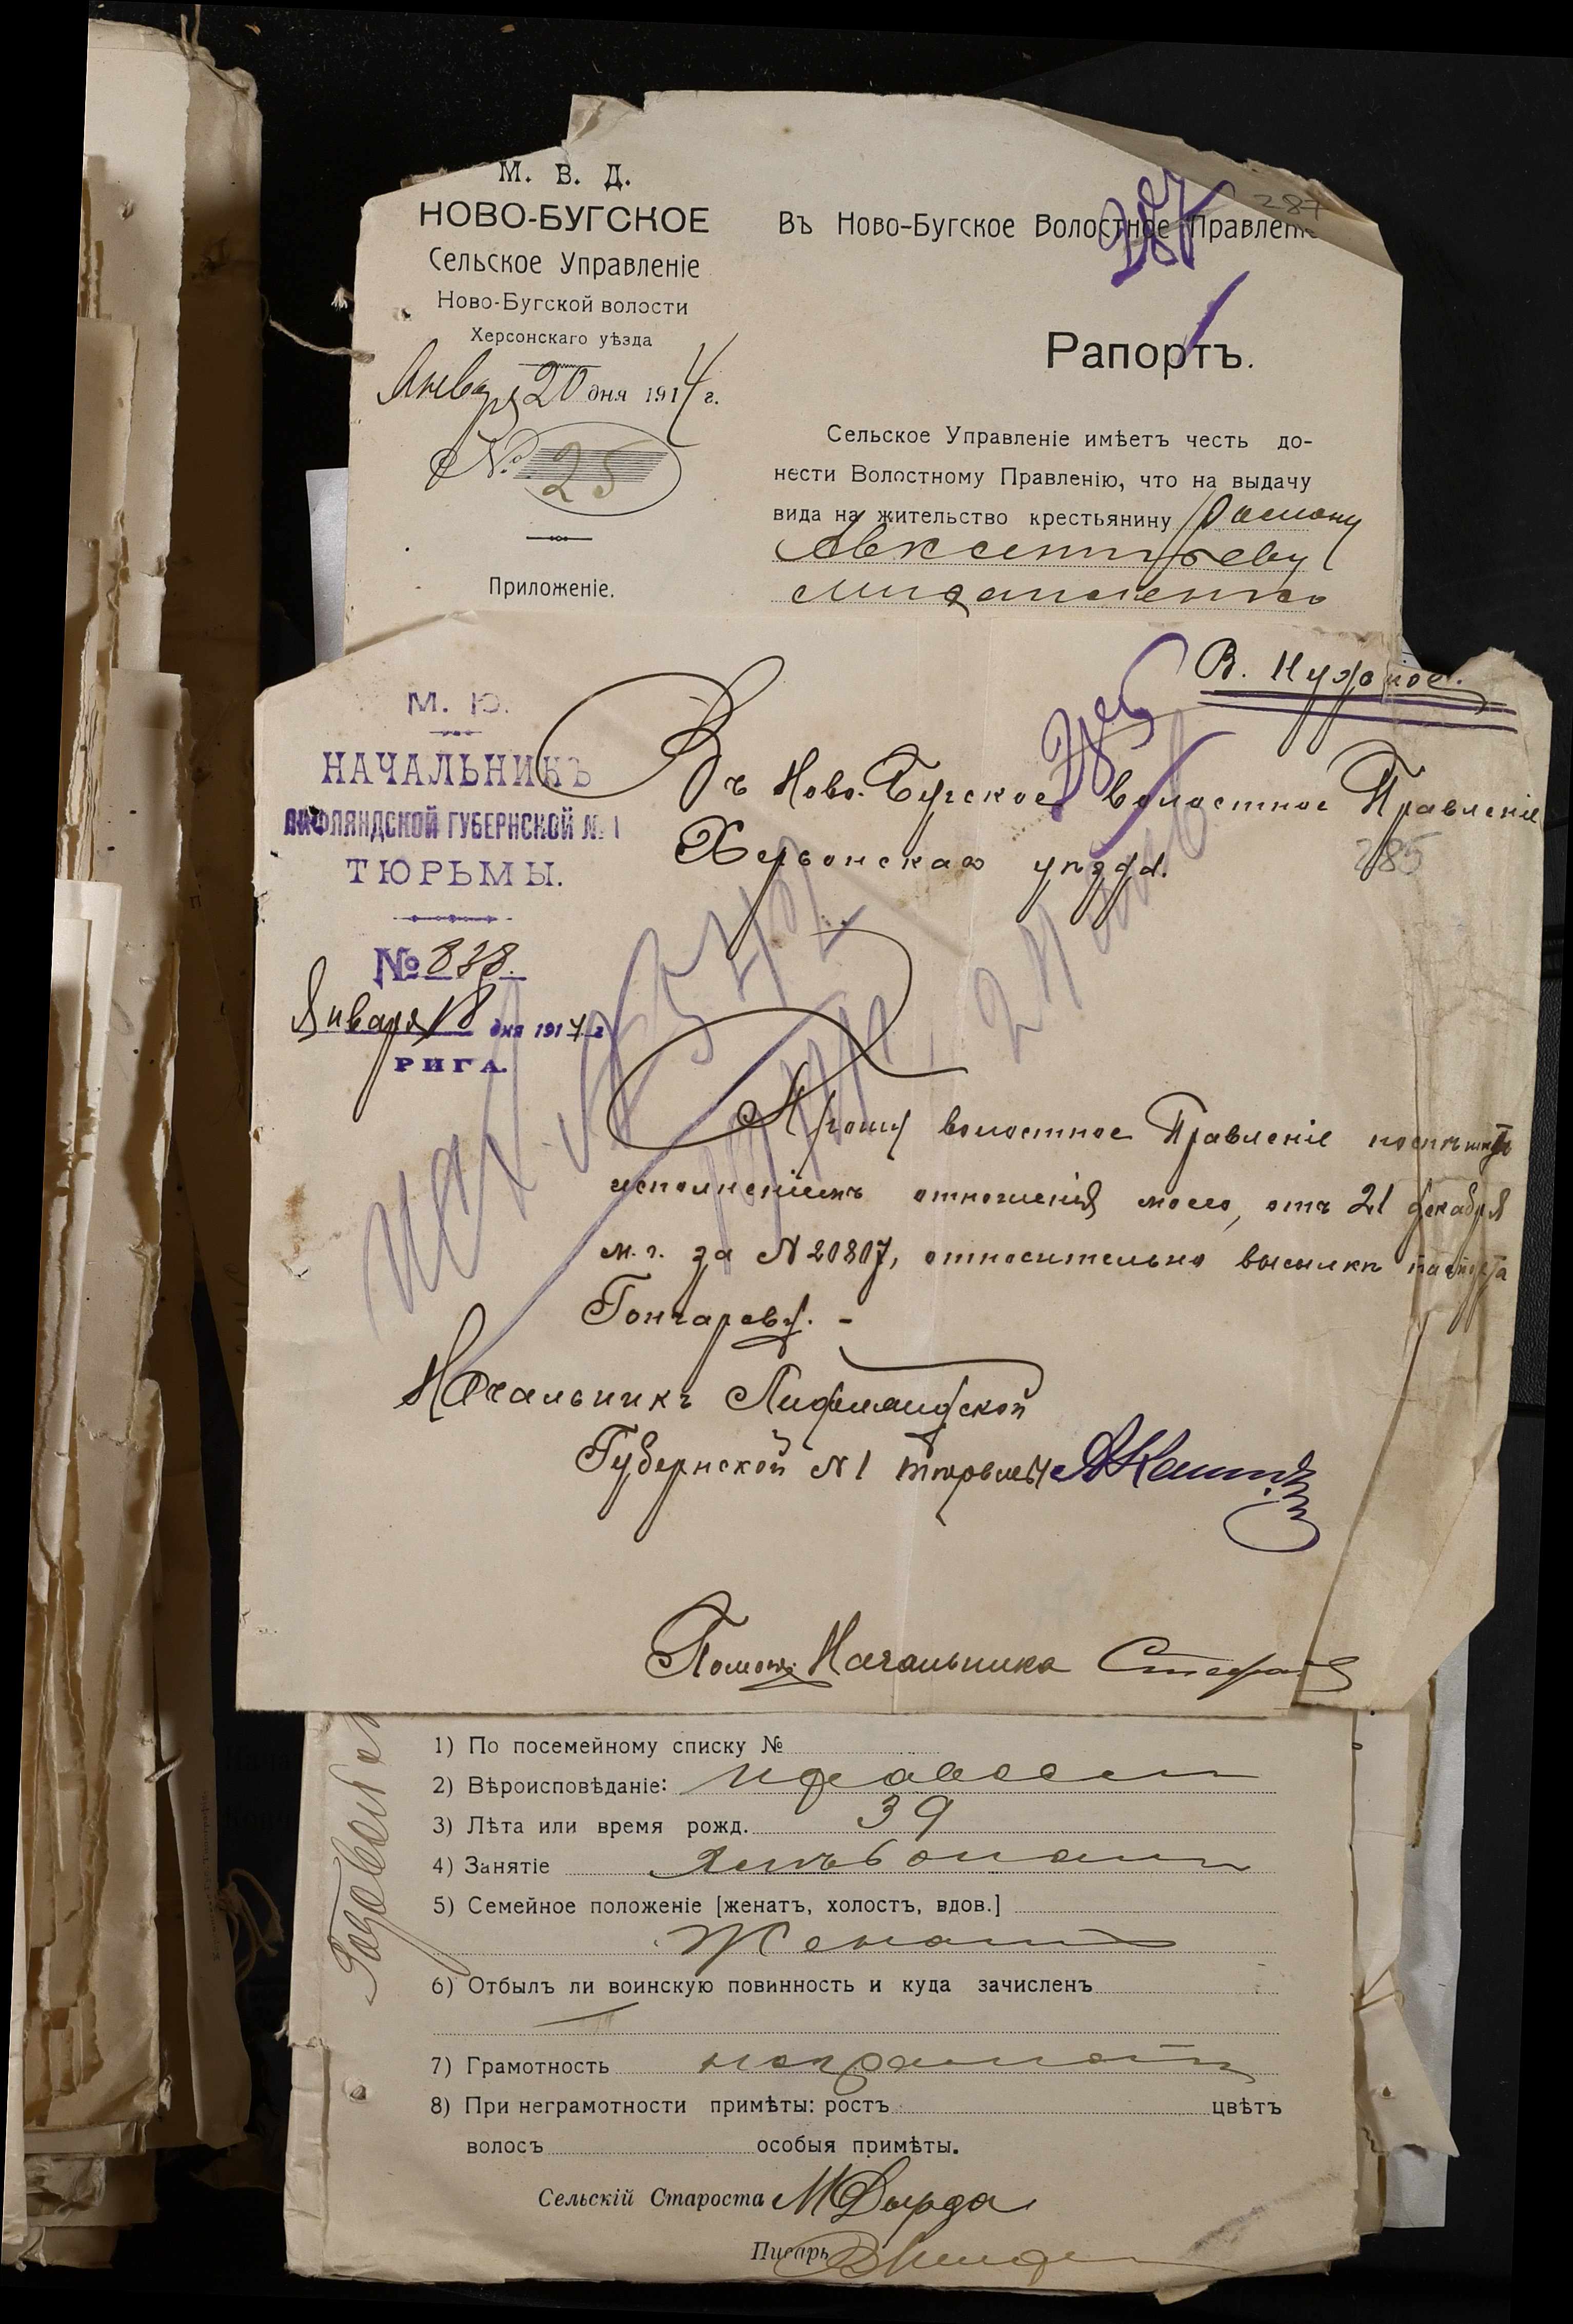 М. В. Д.
НОВО-БУГСКОЕ
Сельское Управленіе
Ново-Бугской волости
Херсонскаго уѣзда
Января 20 дня 1914 г.
№ 25
Приложеніе.
287
Въ Ново-Бугское Волостное Правленіе
Рапортъ.
Сельское Управленіе имѣетъ честь до-
нести Волостному Правленію, что на выдачу
вида на жительство крестьянину Роману
Авксентьеву
М. Ю.
НАЧАЛЬНИКЪ
ЛИФЛЯНДСКОЙ ГУБЕРНСКОЙ № 1
ТЮРЬМЫ.
№ 838.
Января 18 дня 1914 г.
РИГА.
В. Нужное.
Въ Ново-Бугское волостное Правленіе
285
Херсонскаго уѣзда.
Прошу волостное Правленіе поспѣшить
исполненіемъ отношенія моего, отъ 21 декабря
м. г. за № 20807, относительно высылки паспорта
Гончаревъ. -
Начальникъ Лифляндской
Губернской № 1 тюрьмы
Помощ. Начальника
1) По посемейному списку №
2) Вѣроисповѣданіе: православн
3) Лѣта или время рожд. 39
4) Занятіе хлѣбопаш
5) Семейное положеніе [женатъ, холостъ, вдов.]
Женатъ
6) Отбылъ ли воинскую повинность и куда зачисленъ
7) Грамотность неграмотн
8) При неграмотности примѣты: ростъ цвѣтъ
волосъ особыя примѣты.
Сельскій Староста М Дырда
Писарь